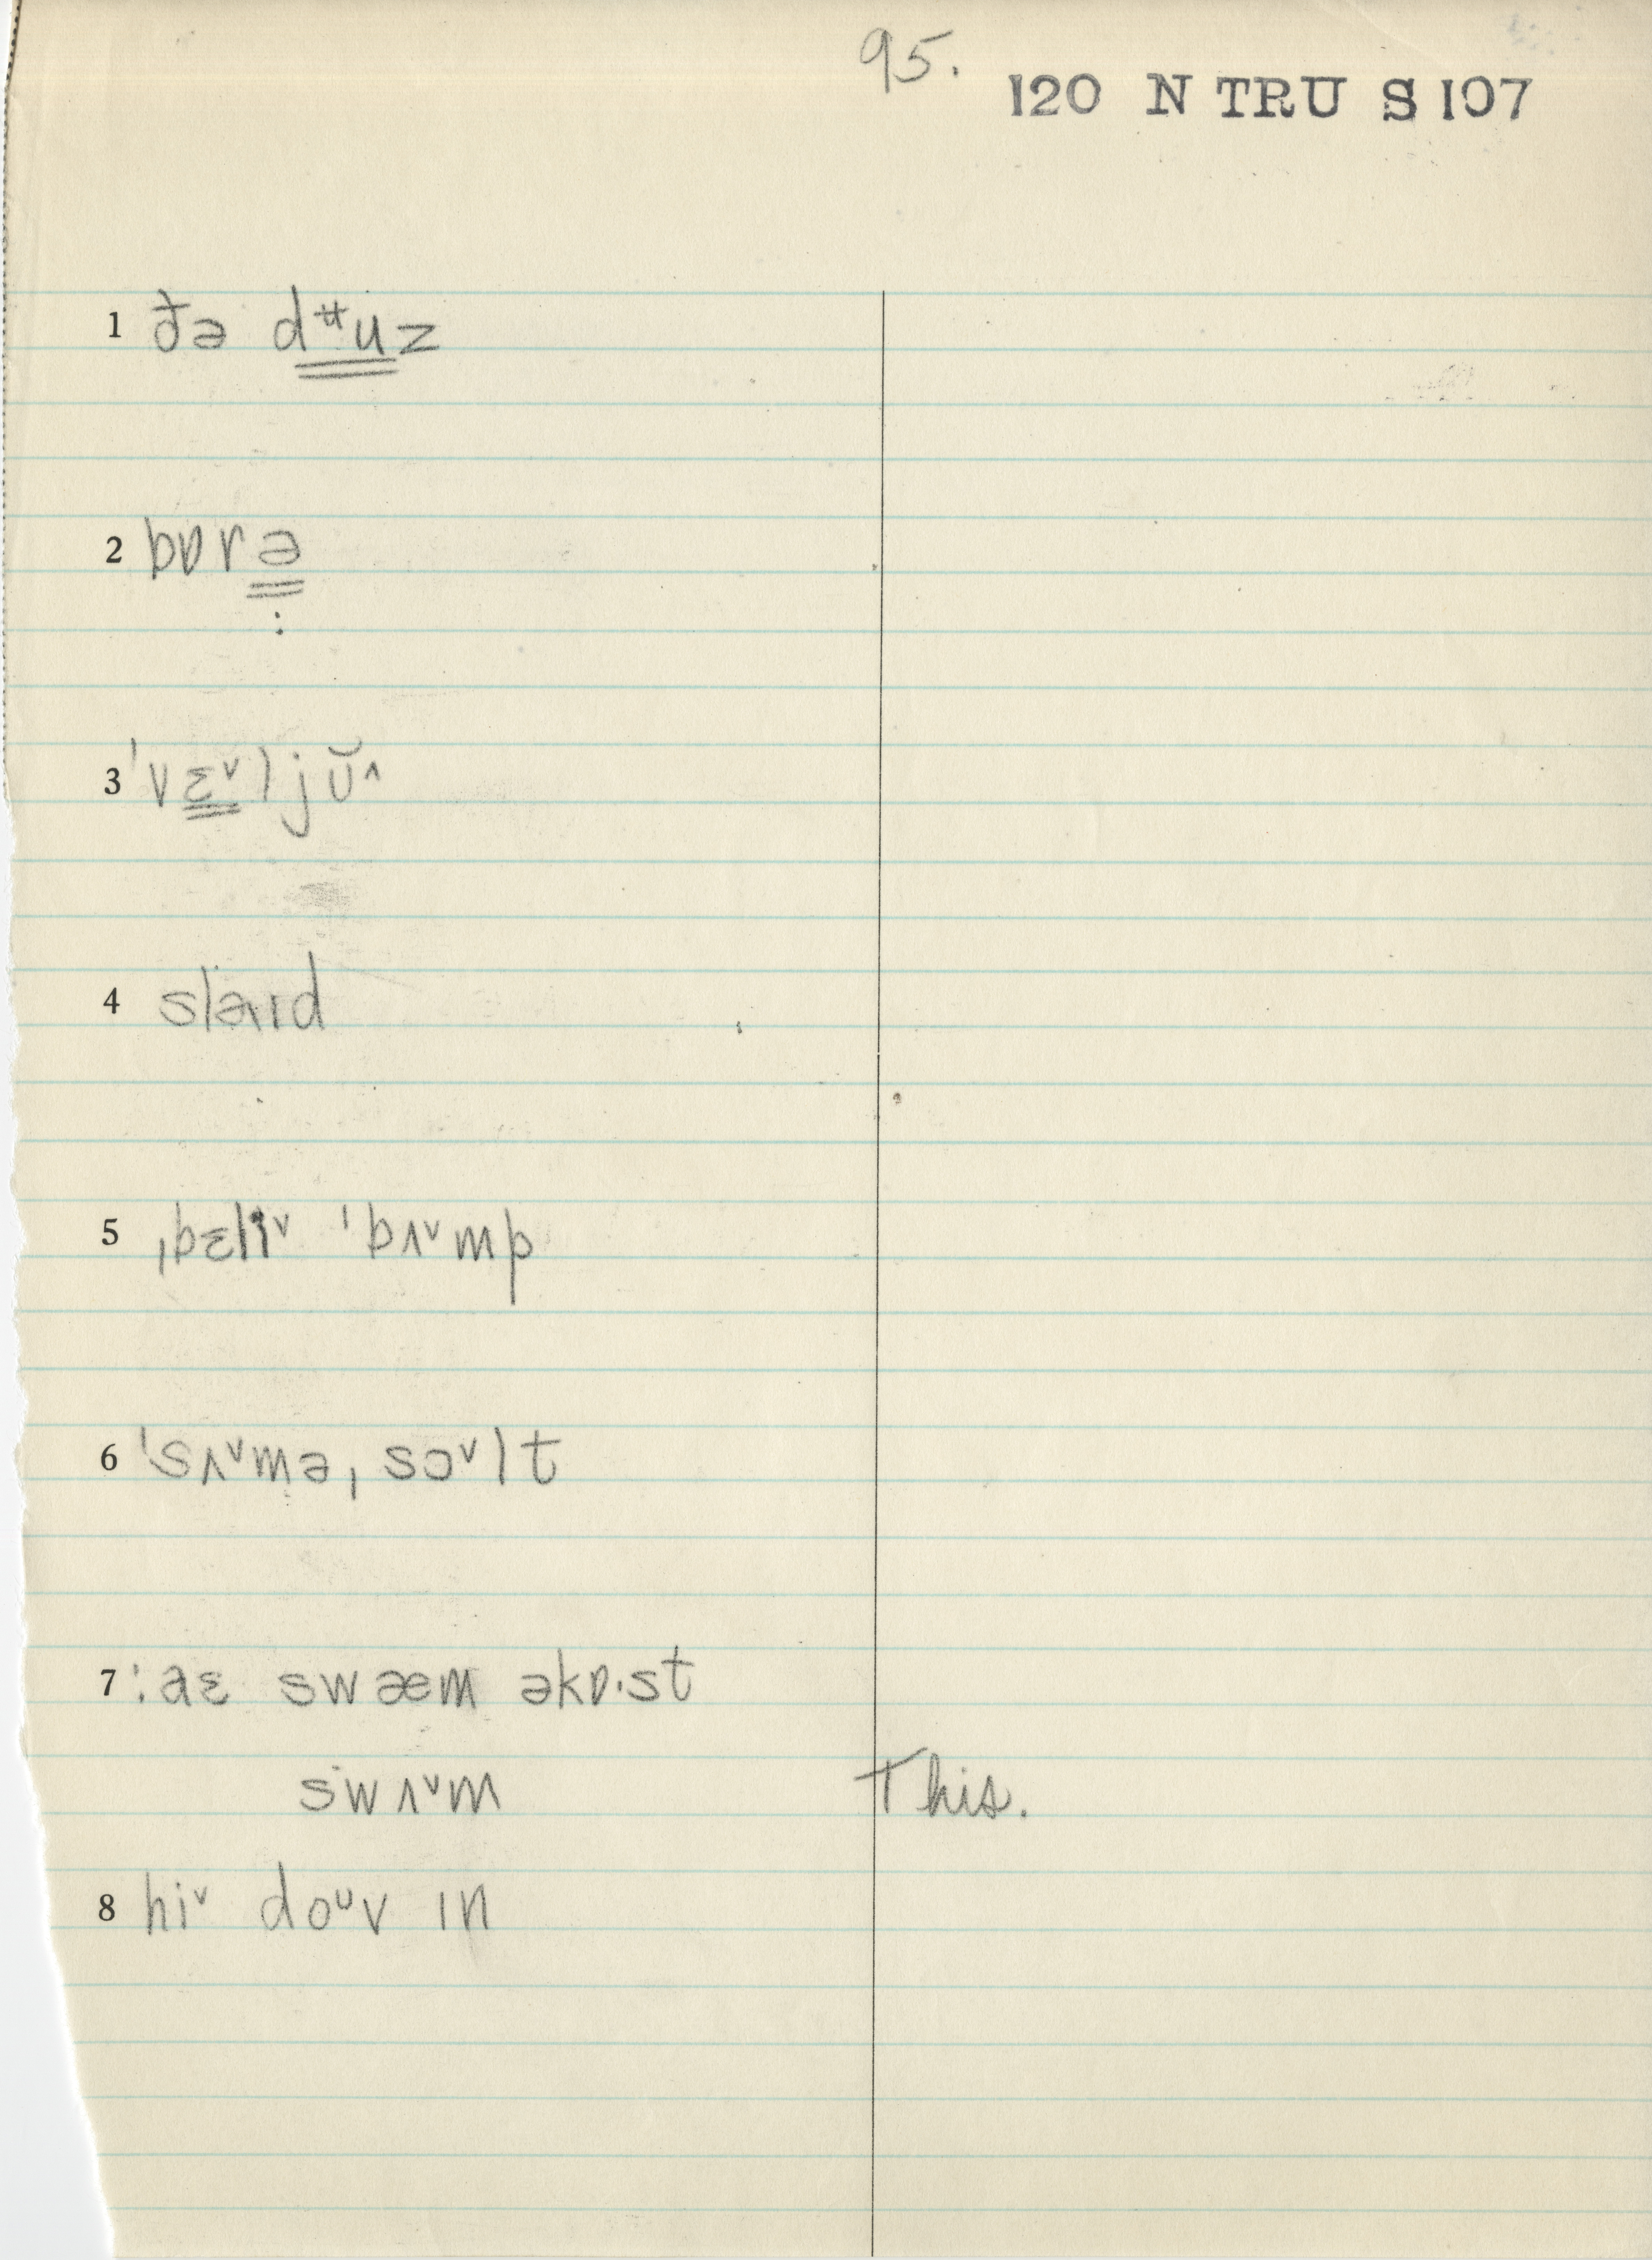 95.
120 N TRU S 107
1 ðə dᵾuz
2 bɒrə
:
3 ˈvɛᵛljʊ̆^
4 sləɪd
5 ˌbɛliᵛ ˈbʌᵛmp
6 ˈsʌᵛməˌsɔᵛlt
7 :aɛ swæm əkɒ·st
swʌᵛm This.
8 hiᵛ doᶷv ɪn